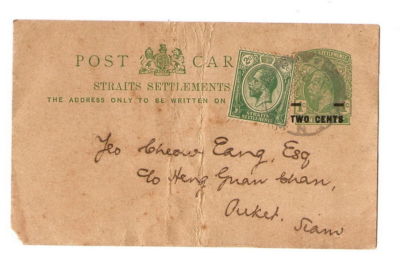 POST CAR
STRAITS SETTLEMENTS
THE ADDRESS ONLY TO BE WRITTEN ON
TWO CENTS
Yeo Cheow Tang, Esq
C/o Heng Guan Chan,
Puket.
Siam